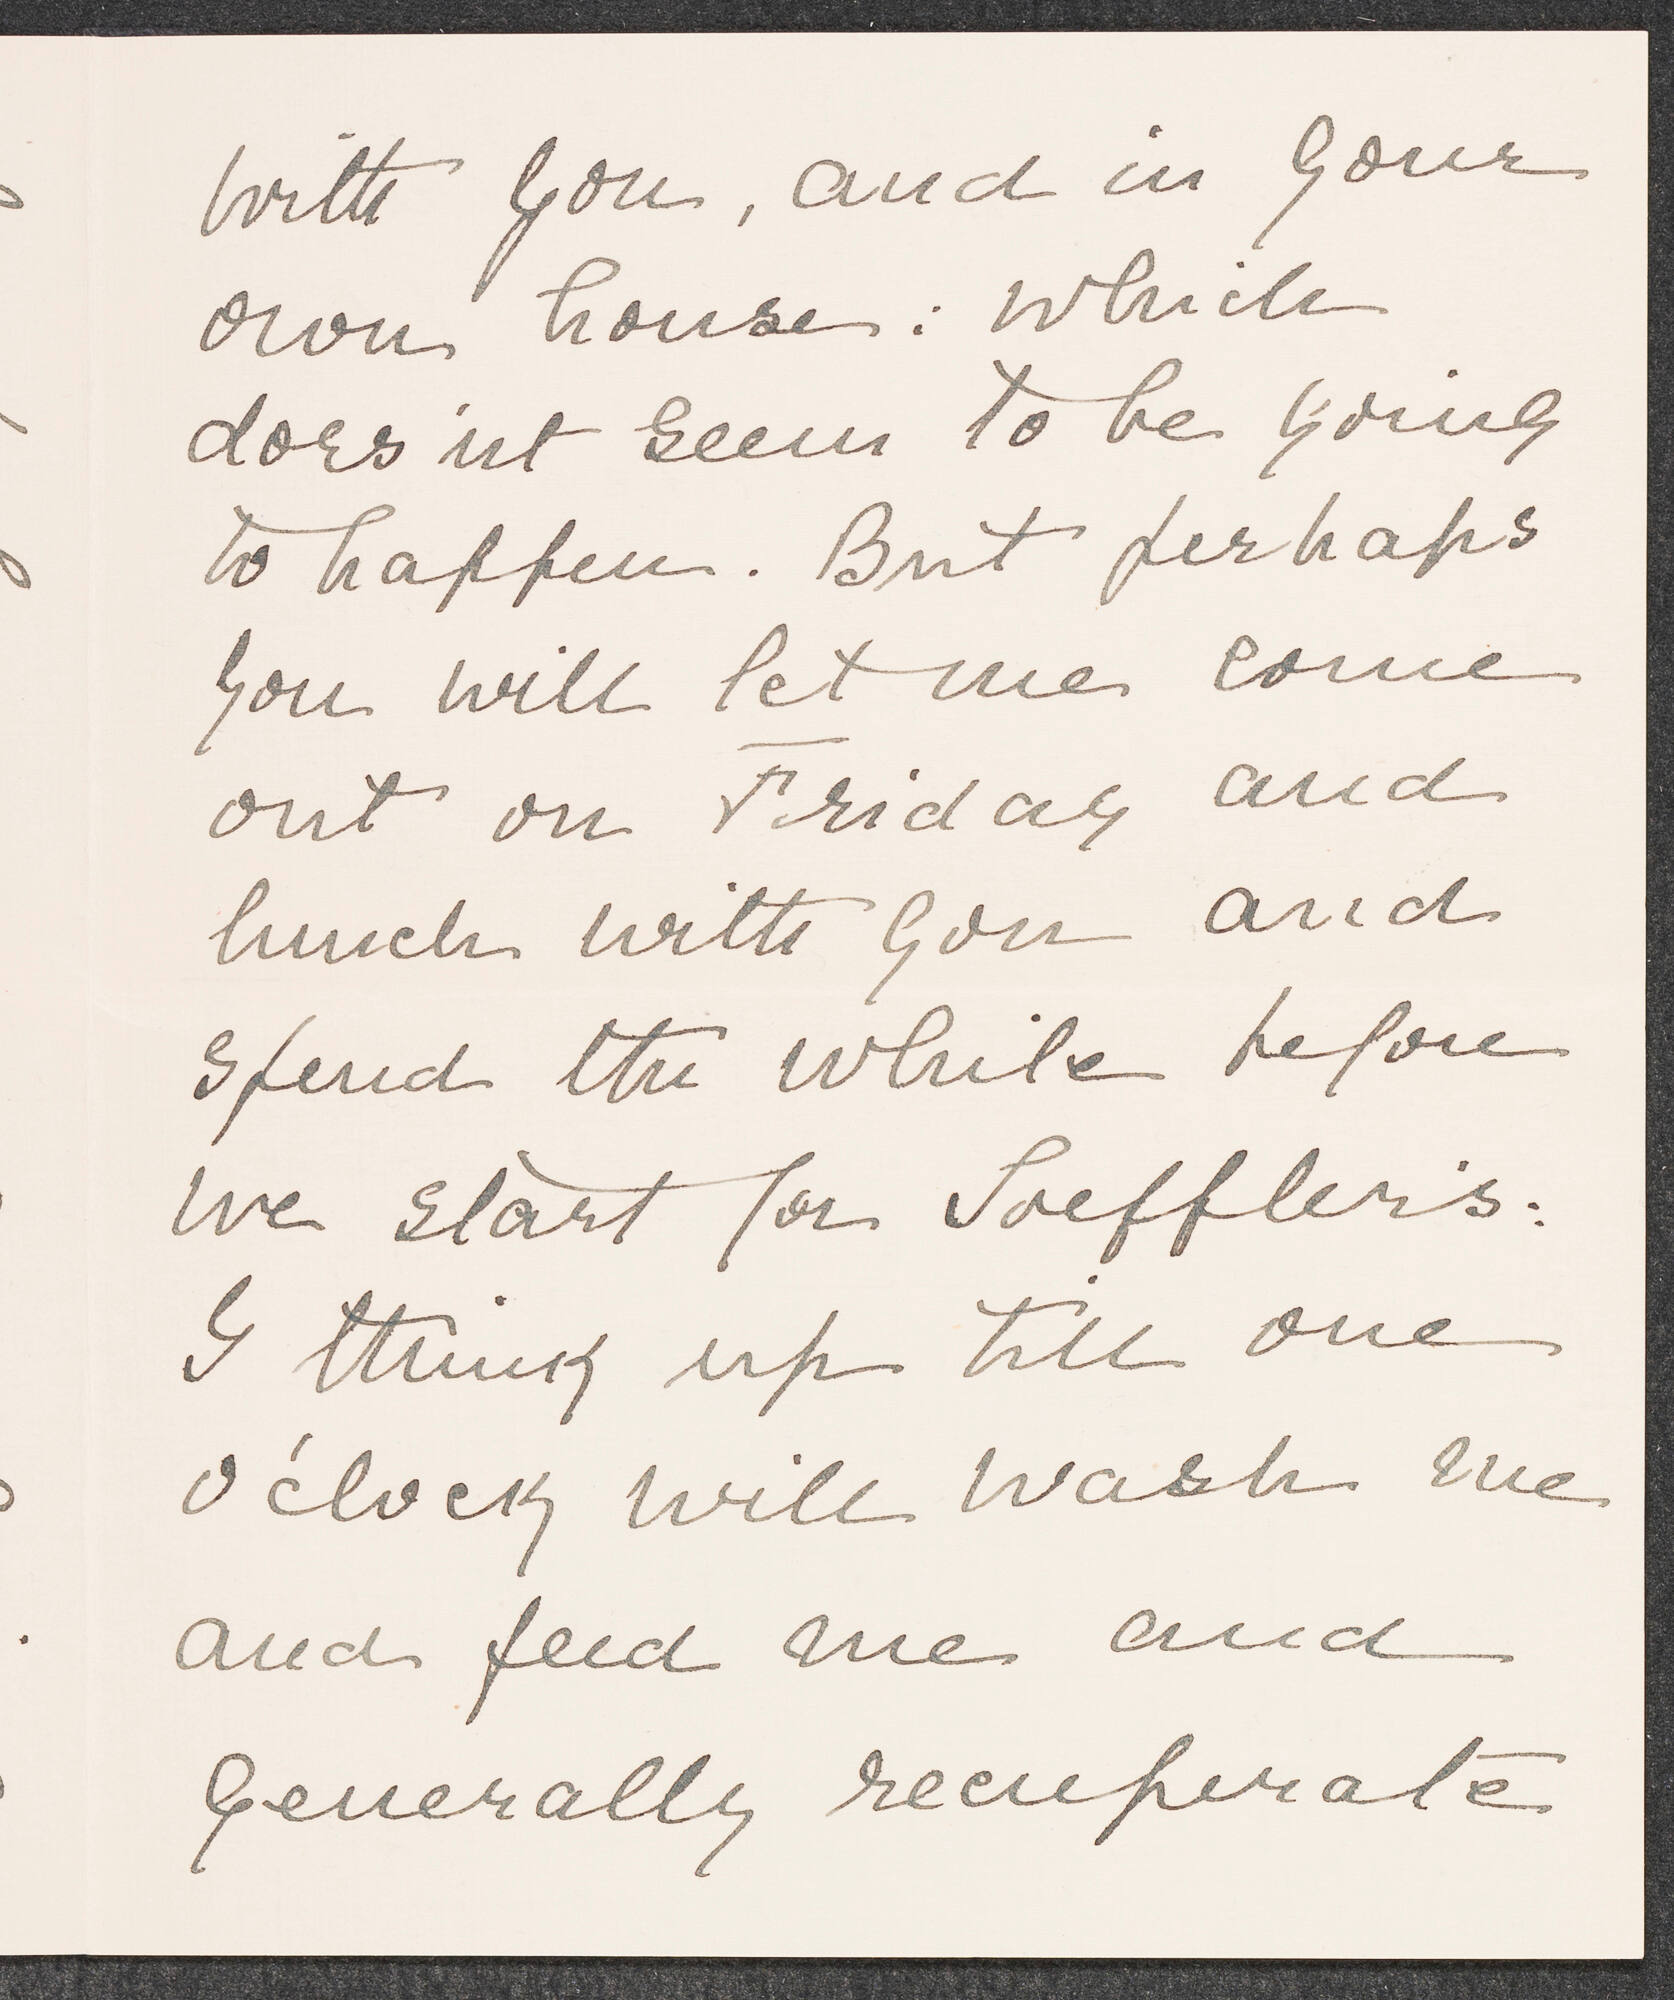 with you, and in your
own house: which
does'nt seem to be going
to happen. But perhaps
you will let me come
out on Friday and
lunch with you and
spend the while before
we start for Loeffler's:
I think up till one
o'clock will wash me
and feed me and
generally recuperate